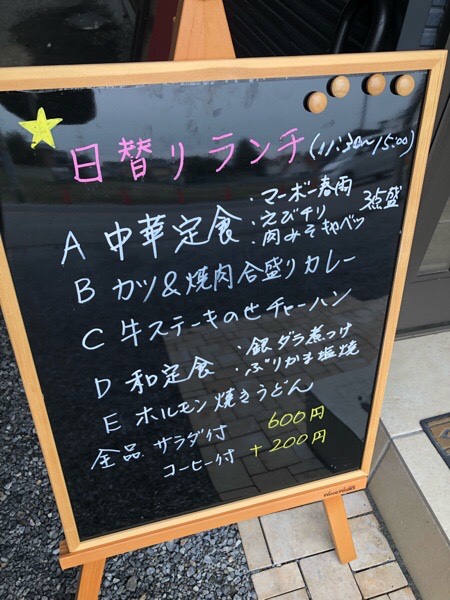 日替りランチ(11:30〜15:00)
A 中華定食 ・マーボー春雨
・えびチリ 3点盛
・肉みそキャベツ
B カツ&焼肉合盛りカレー
C 牛ステーキのせチャーハン
D 和定食 ・銀ダラ煮つけ
・ぶりかま塩焼
E ホルモン焼きうどん
全品 サラダ付 600円
コーヒー付 +200円